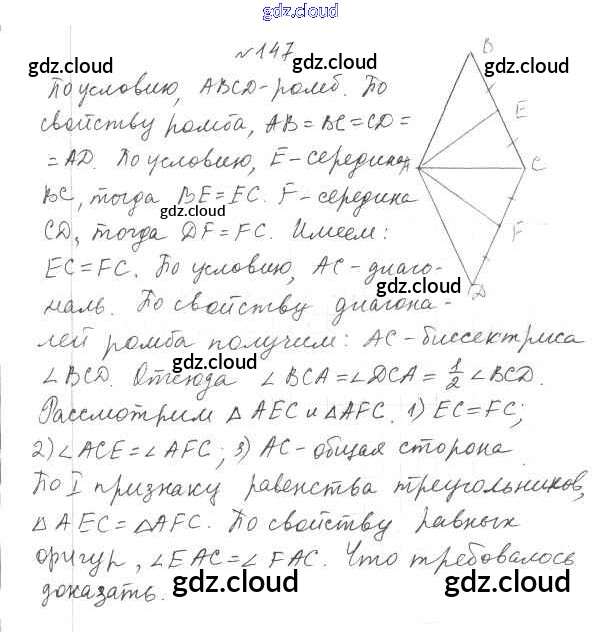 gdz.cloud
№147
gdz.cloud gdz.cloud
По условию, ABCD-ромб. По
свойству ромба, AB=BC=CD=
=AD. По условию, E-середина
BC, тогда BE=EC. F-середина
gdz.cloud
CD, тогда DF=FC. Имеем:
EC=FC. По условию, AC-диаго-
наль. По свойству диагона-
лей ромба получим: AC-биссектриса
gdz.cloud gdz.cloud
∠BCD. Отсюда ∠BCA=∠DCA=1/2∠BCD.
Рассмотрим △AEC и △AFC. 1) EC=FC;
2) ∠ACE=∠AFC; 3) AC-общая сторона
По I признаку равенства треугольников,
△AEC=△AFC. По свойству равных
фигур, ∠EAC=∠FAC. Что требовалось
доказать.
gdz.cloud gdz.cloud
B
E
A
C
F
D